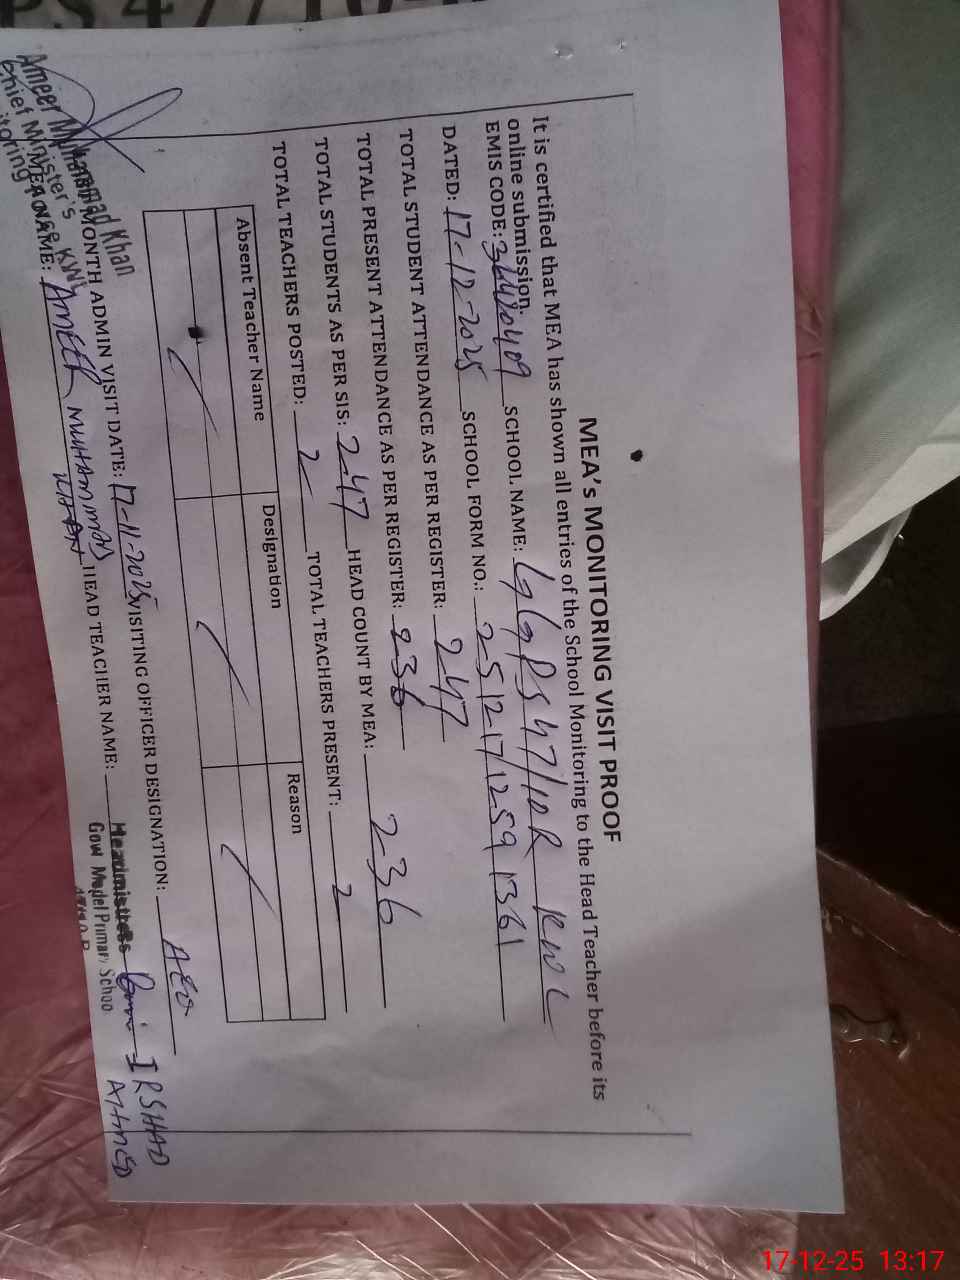 MEA's MONITORING VISIT PROOF
It is certified that MEA has shown all entries of the School Monitoring to the Head Teacher before its
online submission.
EMIS CODE: 36420409 SCHOOL NAME: GGPS 47/10R KWL
DATED: 17-12-2025 SCHOOL FORM NO.: 25121712591361
TOTAL STUDENT ATTENDANCE AS PER REGISTER: 247
TOTAL PRESENT ATTENDANCE AS PER REGISTER: 236
TOTAL STUDENTS AS PER SIS: 247 HEAD COUNT BY MEA: 236
TOTAL TEACHERS POSTED: 2 TOTAL TEACHERS PRESENT: 2
Absent Teacher Name Designation Reason
MONTH ADMIN VISIT DATE: 17-11-2025 VISITING OFFICER DESIGNATION: AEO
NAME: AMEER MUHAMMAD KHAN HEAD TEACHER NAME: IRSHAD
Headmistress
Govt Model Primary School
47/10-R
Ameer Muhammad Khan
Chief Minister's
17-12-25 13:17